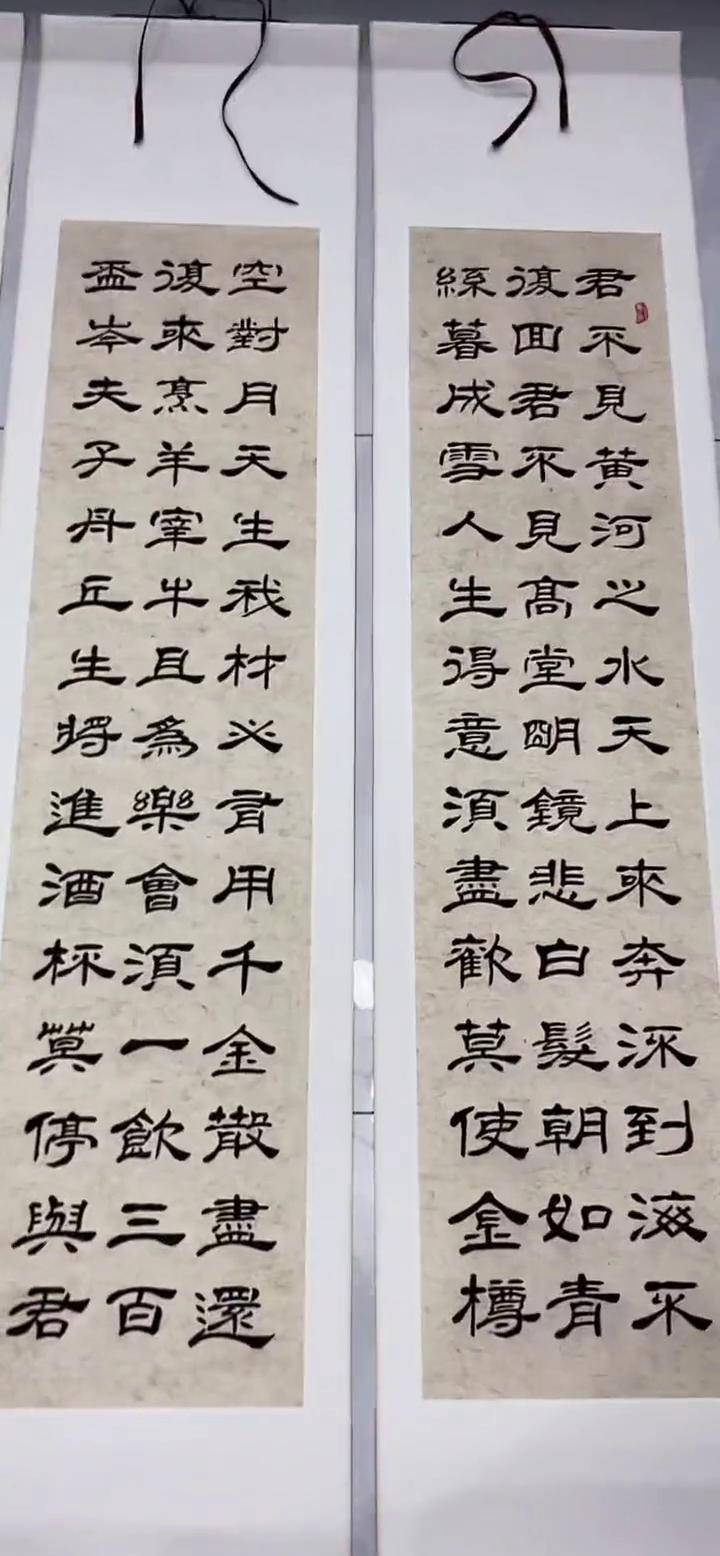 君不見黄河之水天上來奔流到海不
復回君不見高堂明鏡悲白髮朝如青
絲暮成雪人生得意須盡歡莫使金樽
空對月天生我材必有用千金散盡還
復來烹羊宰牛且為樂會須一飲三百
盃岑夫子丹丘生將進酒杯莫停與君